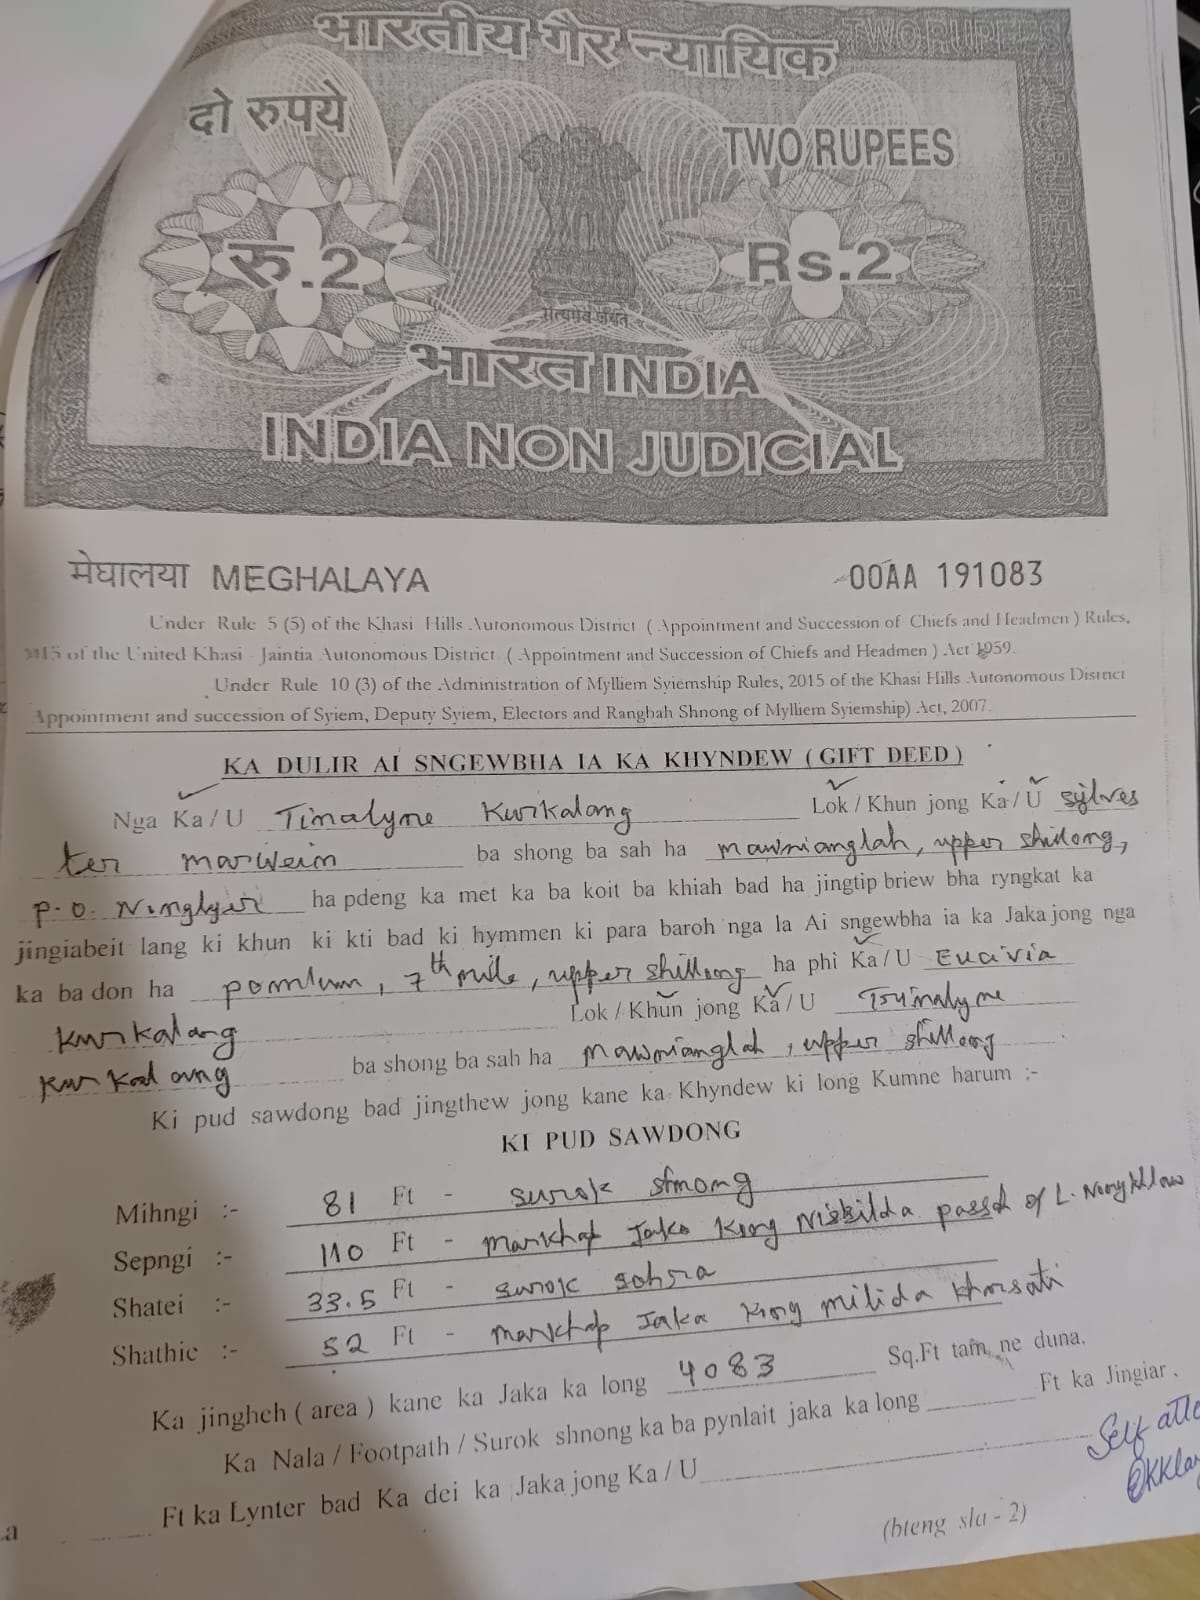 भारतीय गैर न्यायिक
दो रुपये
TWO RUPEES
रु.2
Rs.2
सत्यमेव जयते
भारत INDIA
INDIA NON JUDICIAL
मेघालया MEGHALAYA
00AA 191083
Under Rule 5 (5) of the Khasi Hills Autonomous District ( Appointment and Succession of Chiefs and Headmen ) Rules,
2015 of the United Khasi - Jaintia Autonomous District ( Appointment and Succession of Chiefs and Headmen ) Act 1959.
Under Rule 10 (3) of the Administration of Mylliem Syiemship Rules, 2015 of the Khasi Hills Autonomous District
Appointment and succession of Syiem, Deputy Syiem, Electors and Rangbah Shnong of Mylliem Syiemship) Act, 2007.
KA DULIR AI SNGEWBHA IA KA KHYNDEW ( GIFT DEED )
Nga Ka / U Kurkalang Lok / Khun jong Ka / U sylves
ter marwein ba shong ba sah ha mawnianglah, upper shillong,
P.O. ha pdeng ka met ka ba koit ba khiah bad ha jingtip briew bha ryngkat ka
jingiabeit lang ki khun ki kti bad ki hymmen ki para baroh nga la Ai sngewbha ia ka Jaka jong nga
ka ba don ha pomlum, 7th mile, upper shillong ha phi Ka / U
Kurkalang Lok / Khun jong Ka / U
Kurkalang ba shong ba sah ha mawnianglah, upper shillong
Ki pud sawdong bad jingthew jong kane ka Khyndew ki long Kumne harum :-
KI PUD SAWDONG
Mihngi :- 81 Ft - surok shnong
Sepngi :- 110 Ft - markhap Jaka Kong passah of L. Nongkhlaw
Shatei :- 33.5 Ft - surok sohra
Shathie :- 52 Ft - markhap Jaka Kong milida
Ka jingheh ( area ) kane ka Jaka ka long 4083 Sq.Ft tam ne duna.
Ka Nala / Footpath / Surok shnong ka ba pynlait jaka ka long Ft ka Jingiar .
Ft ka Lynter bad Ka dei ka Jaka jong Ka / U
Self
(bteng sla - 2)